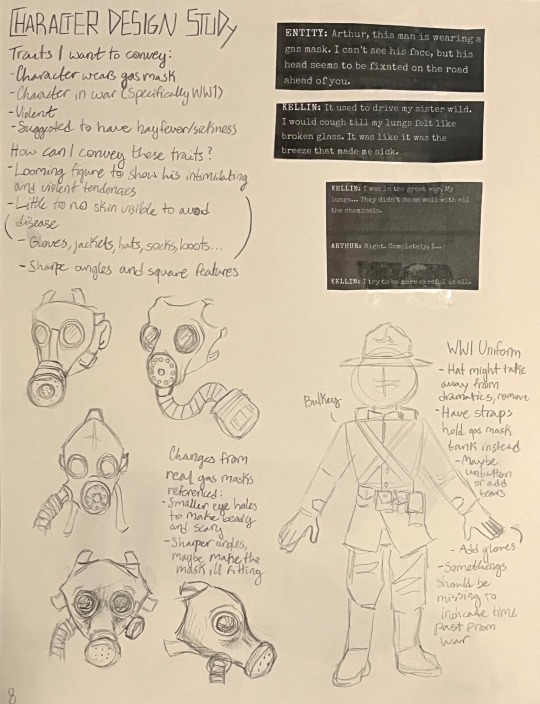 CHARACTER DESIGN STUDY
Traits I want to convey:
- Character wears gas mask
- Character in war (Specifically WW1)
- Violent
- Suggested to have hayfever/sickness
How can I convey these traits?
- Looming figure to show his intimidating
and violent tendences
- Little to no skin visible to avoid
disease
- Gloves, jackets, hats, socks, boots...
- Sharpe angles and square features
ENTITY: Arthur, this man is wearing a
gas mask. I can't see his face, but his
head seems to be fixated on the road
ahead of you.
KELLIN: It used to drive my sister wild.
I would cough till my lungs felt like
broken glass. It was like it was the
breeze that made me sick.
KELLIN: I was in the great war. My
lungs... They didn't do so well with all
the chemicals.
ARTHUR: Right. Completely, I...
KELLIN: I try to be more careful is all.
Changes from
real gas masks
referenced:
- Smaller eye holes
to make beady
and scary
- Sharper angles,
maybe make the
mask ill fitting
Bulkey
WW1 Uniform
- Hat might take
away from
dramatics, remove
- Have straps
hold gas mask
tank instead
- Maybe
unbutton
or add
tears
- Add gloves
- Somethings
should be
missing to
indicate time
past from
war
8